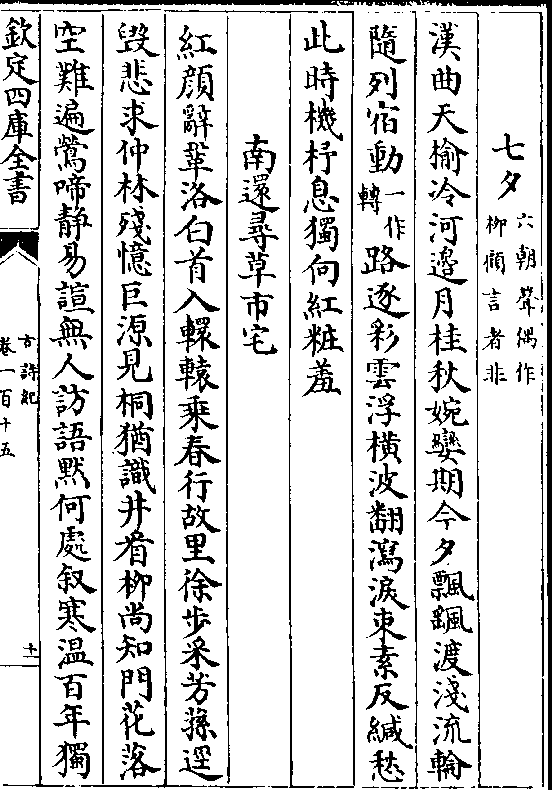 七夕 六朝聲偶作
柳䫉言者非
漢曲天榆冷河邊月桂秋婉孌期今夕飄颻渡淺流輪
隨列宿動一作轉路逐彩雲浮橫波翻瀉淚束素反緘愁
此時機杼息獨向紅粧羞
南還尋草市宅
紅顏辭鞏洛白首入轘轅乘春行故里徐步采芳蓀逕
毀悲求仲林殘憶巨源見桐猶識井看柳尚知門花落
空難遍鶯啼靜易諠無人訪語默何處叙寒温百年獨
欽定四庫全書
古詩紀
卷一百十五
十一